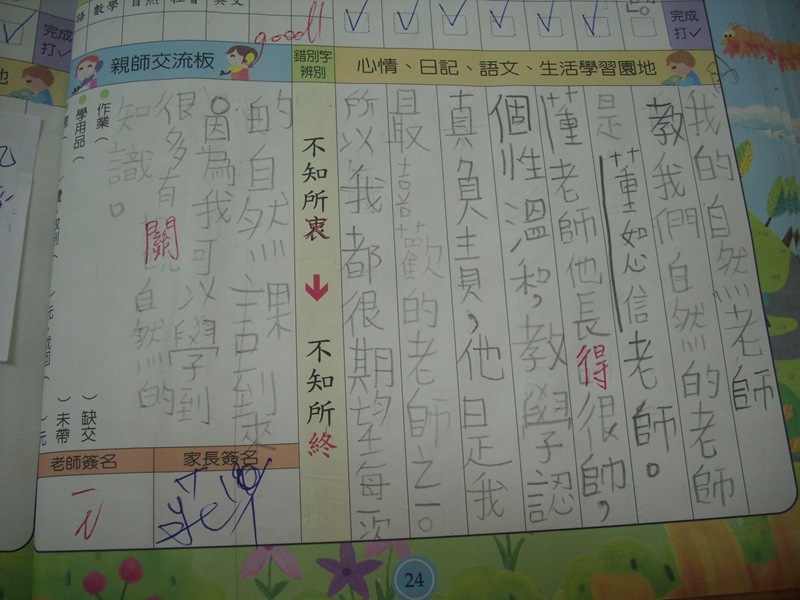 good!
完成
打✓
完成
打✓
親師交流板
錯別字
辨別
心情、日記、語文、生活學習園地
我的自然老師
教我們自然的老師
是董恕信老師。
董老師他長得很帥,
個性溫和,教學認
真負責,他是我
最喜歡的老師之一。
所以我都很期望每一次
的自然課到來
因為我可以學到
很多有關自然的
知識。
不知所衷
不知所終
作業
學用品
缺交
未帶
元
老師簽名
家長簽名
24